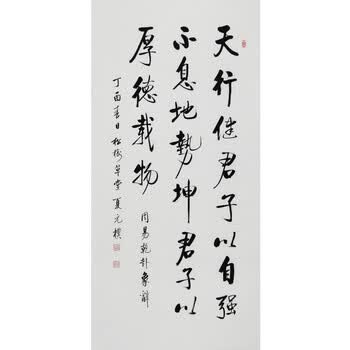 天行健君子以自强
不息地勢坤君子以
厚德载物
周易乾卦象辞
丁酉春日松梅草堂夏元樸